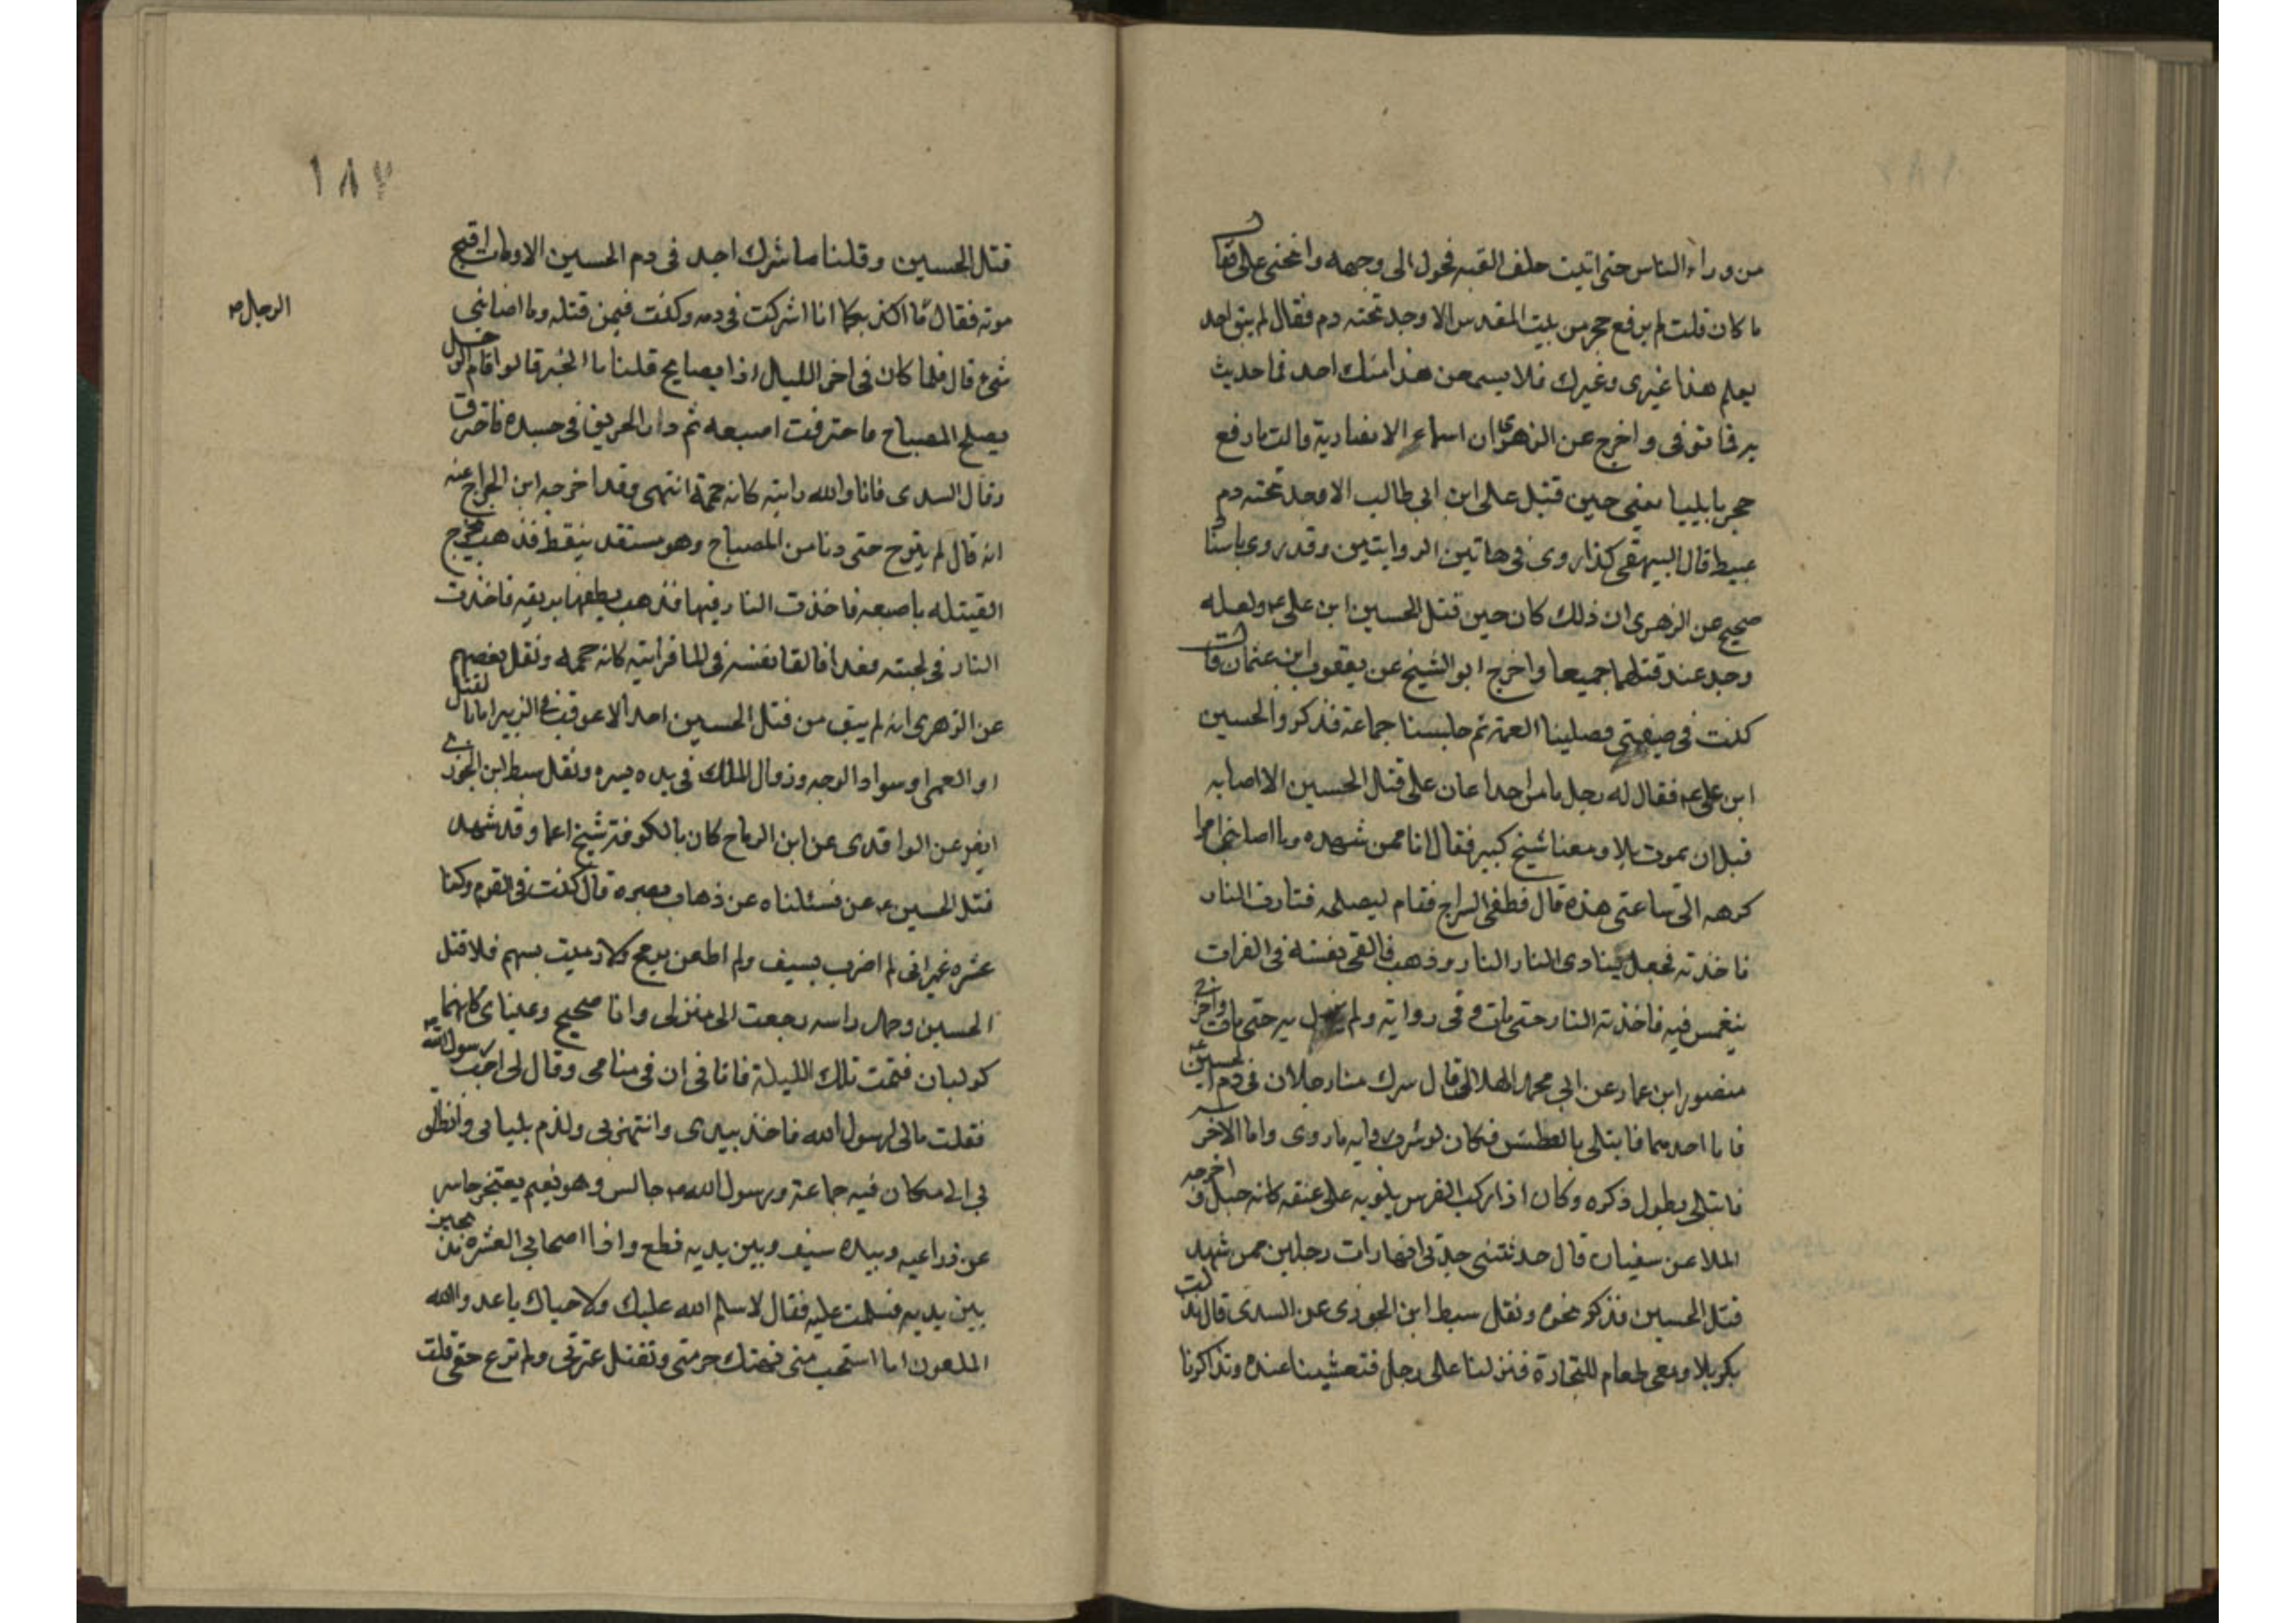 من وراء الناس حتى اتيت خلف القبه فحول الى وجهه وانحنى على فقال
ما كان قلت لم يرفع حجر من بيت المقدس الا وجد تحته دم فقال لم يبق احد
يعلم هذا غيرى وغيرك فلا يسمعن هذا منك احد فما حديث
به فا توفى واخرج عن الزهرى ان اسماء الانصارية قالت ما رفع
حجر بايليا يعنى حين قتل على ابن ابى طالب الا وجد تحته دم
عبيط قال البيهقى كذا روى فى هاتين الروايتين وقد روى باسنا
صحيح عن الزهرى ان ذلك كان حين قتل الحسين ابن على ع ولعله
وجد عند قتلهما جميعا واخرج ابو الشيخ عن يعقوب ابن عثمان قال
كنت فى ضيعتى فصلينا العمة ثم جلسنا جماعة فذكروا الحسين
ابن على ع فقال له رجل ما من احد اعان على قتل الحسين الا اصابه
قبل ان يموت بلا ومعنا شيخ كبير فقال انا ممن شهده وما اصابنى امرا
كرهه الى ساعتى هذه قال فطفى السراج فقام ليصلحه فثارت النار
فاخذته فجعل ينادى النار النار وذهب فالقى نفسه فى الفرات
ينغمس فيه فاخذته النار حتى مات وفى رواية ولم يزل به حتى مات واخرج
منصور ابن عمار عن ابى محمد الهلالى قال شرك منا رجلان فى دم الحسين ع
فاما احدهما فابتلى بالعطش فكان لو شرب راويه ما روى واما الاخر
فابتلى بطول ذكره وكان اذا ركب الفرس يلويه على عنقه كانه حبل و اخرجه
الملا عن سفيان قال حدثتنى جدتى انها رات رجلين ممن شهد
قتل الحسين فذكر نحوه ونقل سبط ابن الجوزى عن السدى قال نزلت
بكربلا ومعى طعام للتجارة فنزلنا على رجل فتعشينا عنده وتذاكرنا
١٨٧
قتل الحسين وقلنا ما شرك احد فى دم الحسين الا ومات اقبح
موته فقال ما اكذبكما انا اشركت فى دمه وكنت فيمن قتله وما اصابنى
شىء قال فلما كان فى اخر الليل اذا بصايح قلنا ما الخبر قالوا قام الرجل
يصلح المصباح فاحترقت اصبعه ثم دار الحريق فى جسده فاحترق
وقال السدى فانا والله رايته كانه حممة انتهى وقد اخرجه ابن الجراح عنه
انه قال لم يبرح حتى دنا من المصباح وهو متقد بنفط فذهب يخرج
الفتيله باصبعه فاخذت النار فيها فذهب يطفها بريقه فاخذت
النار فى لحيته فغدا فالقا نفسه فى الما فرايته كانه حممه ونقل بعضهم
عن الزهرى انه لم يبق من قتل الحسين احد الا عوقب فى الدنيا اما بالقتل
او العمى او سواد الوجه وزوال الملك فى مده يسيره ونقل سبط ابن الجوزى
ايض عن الواقدى عن ابن الرماح كان بالكوفة شيخ اعما وقد شهد
قتل الحسين ع عن فسئلناه عن ذهاب بصره قال كنت فى القوم وكنا
عشره غير انى لم اضرب بسيف ولم اطعن برمح ولا رميت بسهم فلما قتل
الحسين وحمل راسه رجعت الى منزلى وانا صحيح وعيناى كانهما
كوكبان فنمت تلك الليلة فاتا فى ان فى منامى وقال لى اجب رسول الله
فقلت مالى لرسول الله فاخذ بيدى وانتهزنى ولزم بلبابى وانطلق
بى الى مكان فيه جماعة ورسول الله ص جالس وهو مغتم معتجر حاسر
عن ذراعيه وبيده سيف وبين يديه نطع واذا اصحابى العشره مذبحين
بين يديه فسلمت عليه فقال لا سلم الله عليك ولا حياك يا عدو الله
الملعون اما استحيت منى تهتك حرمتى وتقتل عترتى ولم ترع حقى قلت
الرجال ص